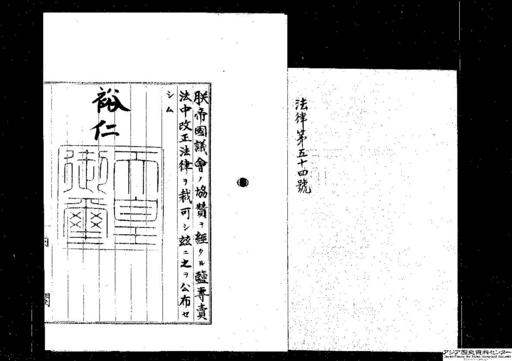 法律第五十四號
朕帝國議會ノ協贊ヲ經タル鹽專賣
法中改正法律ヲ裁可シ玆ニ之ヲ公布セ
シム
裕仁
天皇
御璽
内
閣
アジア歴史資料センター